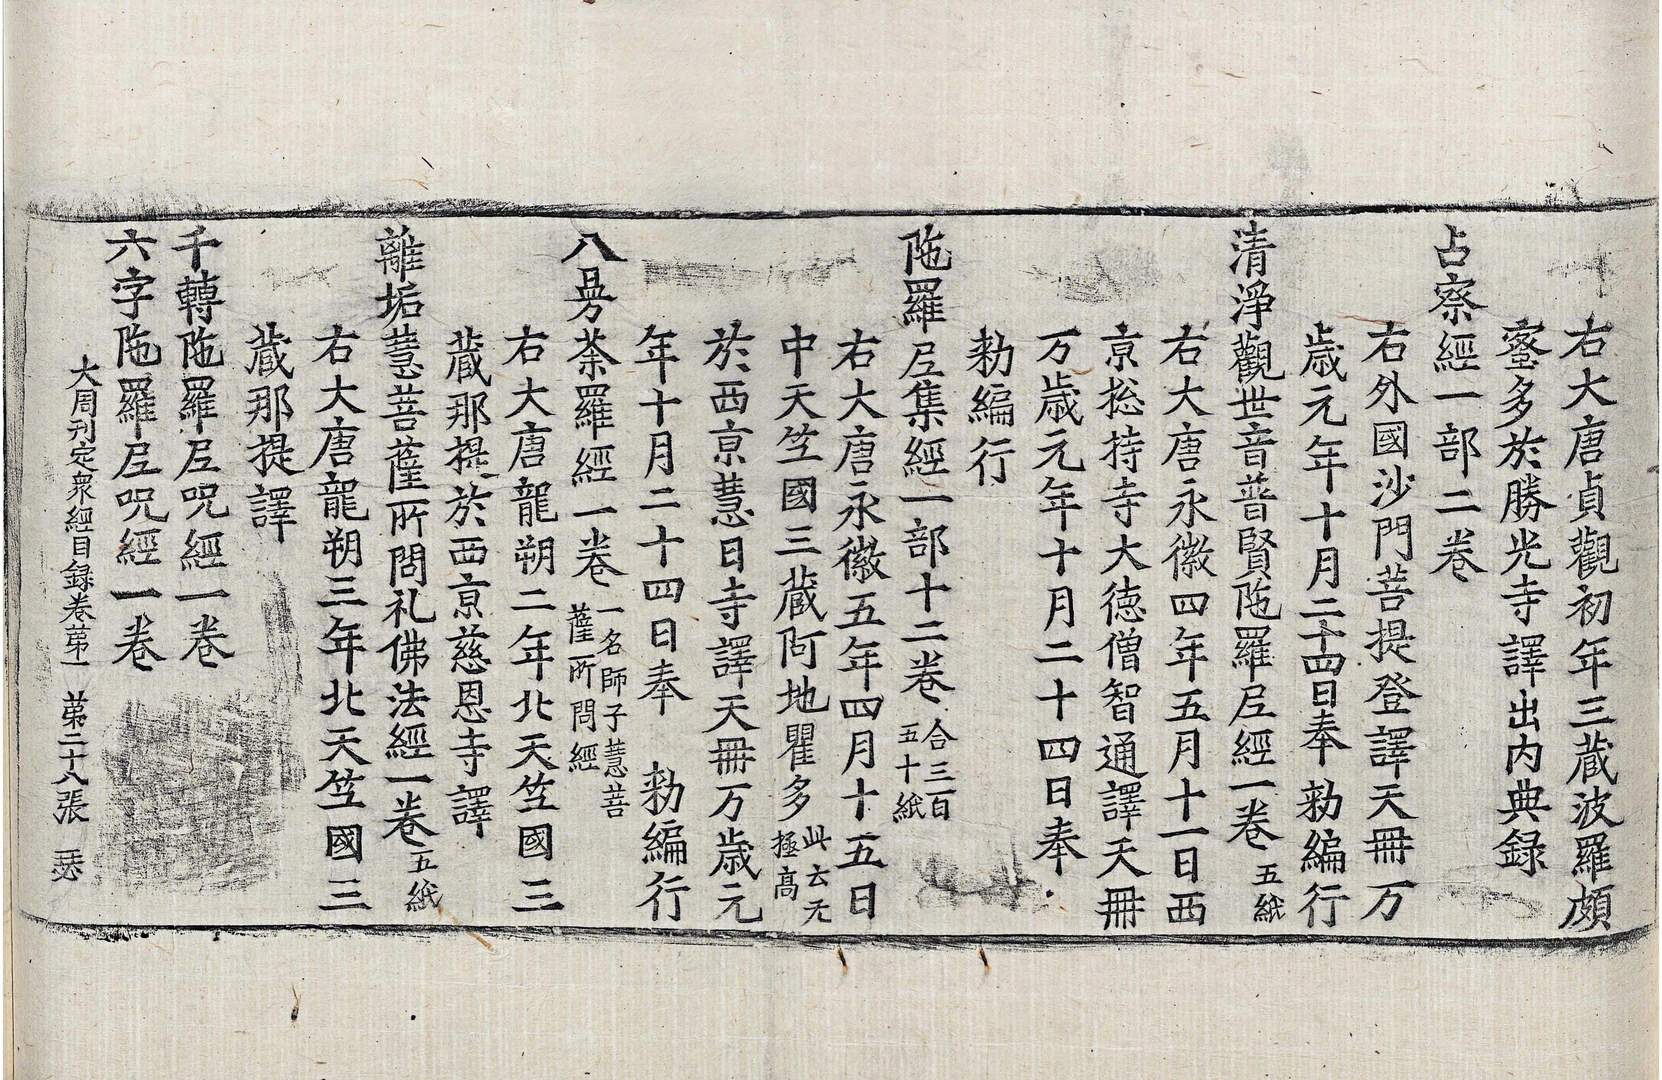 右大唐貞觀初年三蔵波羅頗
蜜多於勝光寺譯出内典録
占察經一部二卷
右外國沙門菩提登譯天冊万
歳元年十月二十四日奉　勑編行
清淨觀世音普賢陁羅尼經一卷 五紙
右大唐永徽四年五月十一日西
亰捴持寺大徳僧智通譯天冊
万歳元年十月二十四日奉
勑編行
陁羅尼集經一部十二卷 合三百五十紙
右大唐永徽五年四月十五日
中天竺國三蔵阿地瞿多 此云无極高
於西亰慧日寺譯天冊万歳元
年十月二十四日奉　勑編行
八曼荼羅經一卷 一名師子慧菩薩所問經
右大唐龍朔二年北天竺國三
蔵那提於西亰慈恩寺譯
離垢慧菩薩所問礼佛法經一卷 五紙
右大唐龍朔三年北天竺國三
蔵那提譯
千轉陁羅尼呪經一卷
六字陁羅尼呪經一卷
大周刊定衆經目録卷苐一　苐二十八張　瑟